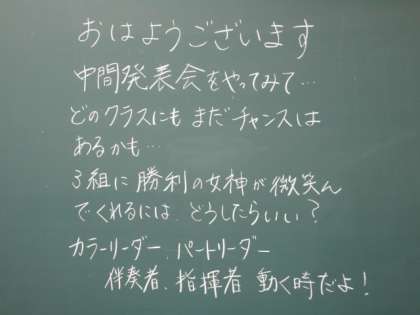 おはようございます
中間発表会をやってみて…
どのクラスにもまだチャンスは
あるかも…
3組に勝利の女神が微笑ん
でくれるには、どうしたらいい？
カラーリーダー、パートリーダー
伴奏者、指揮者 動く時だよ！